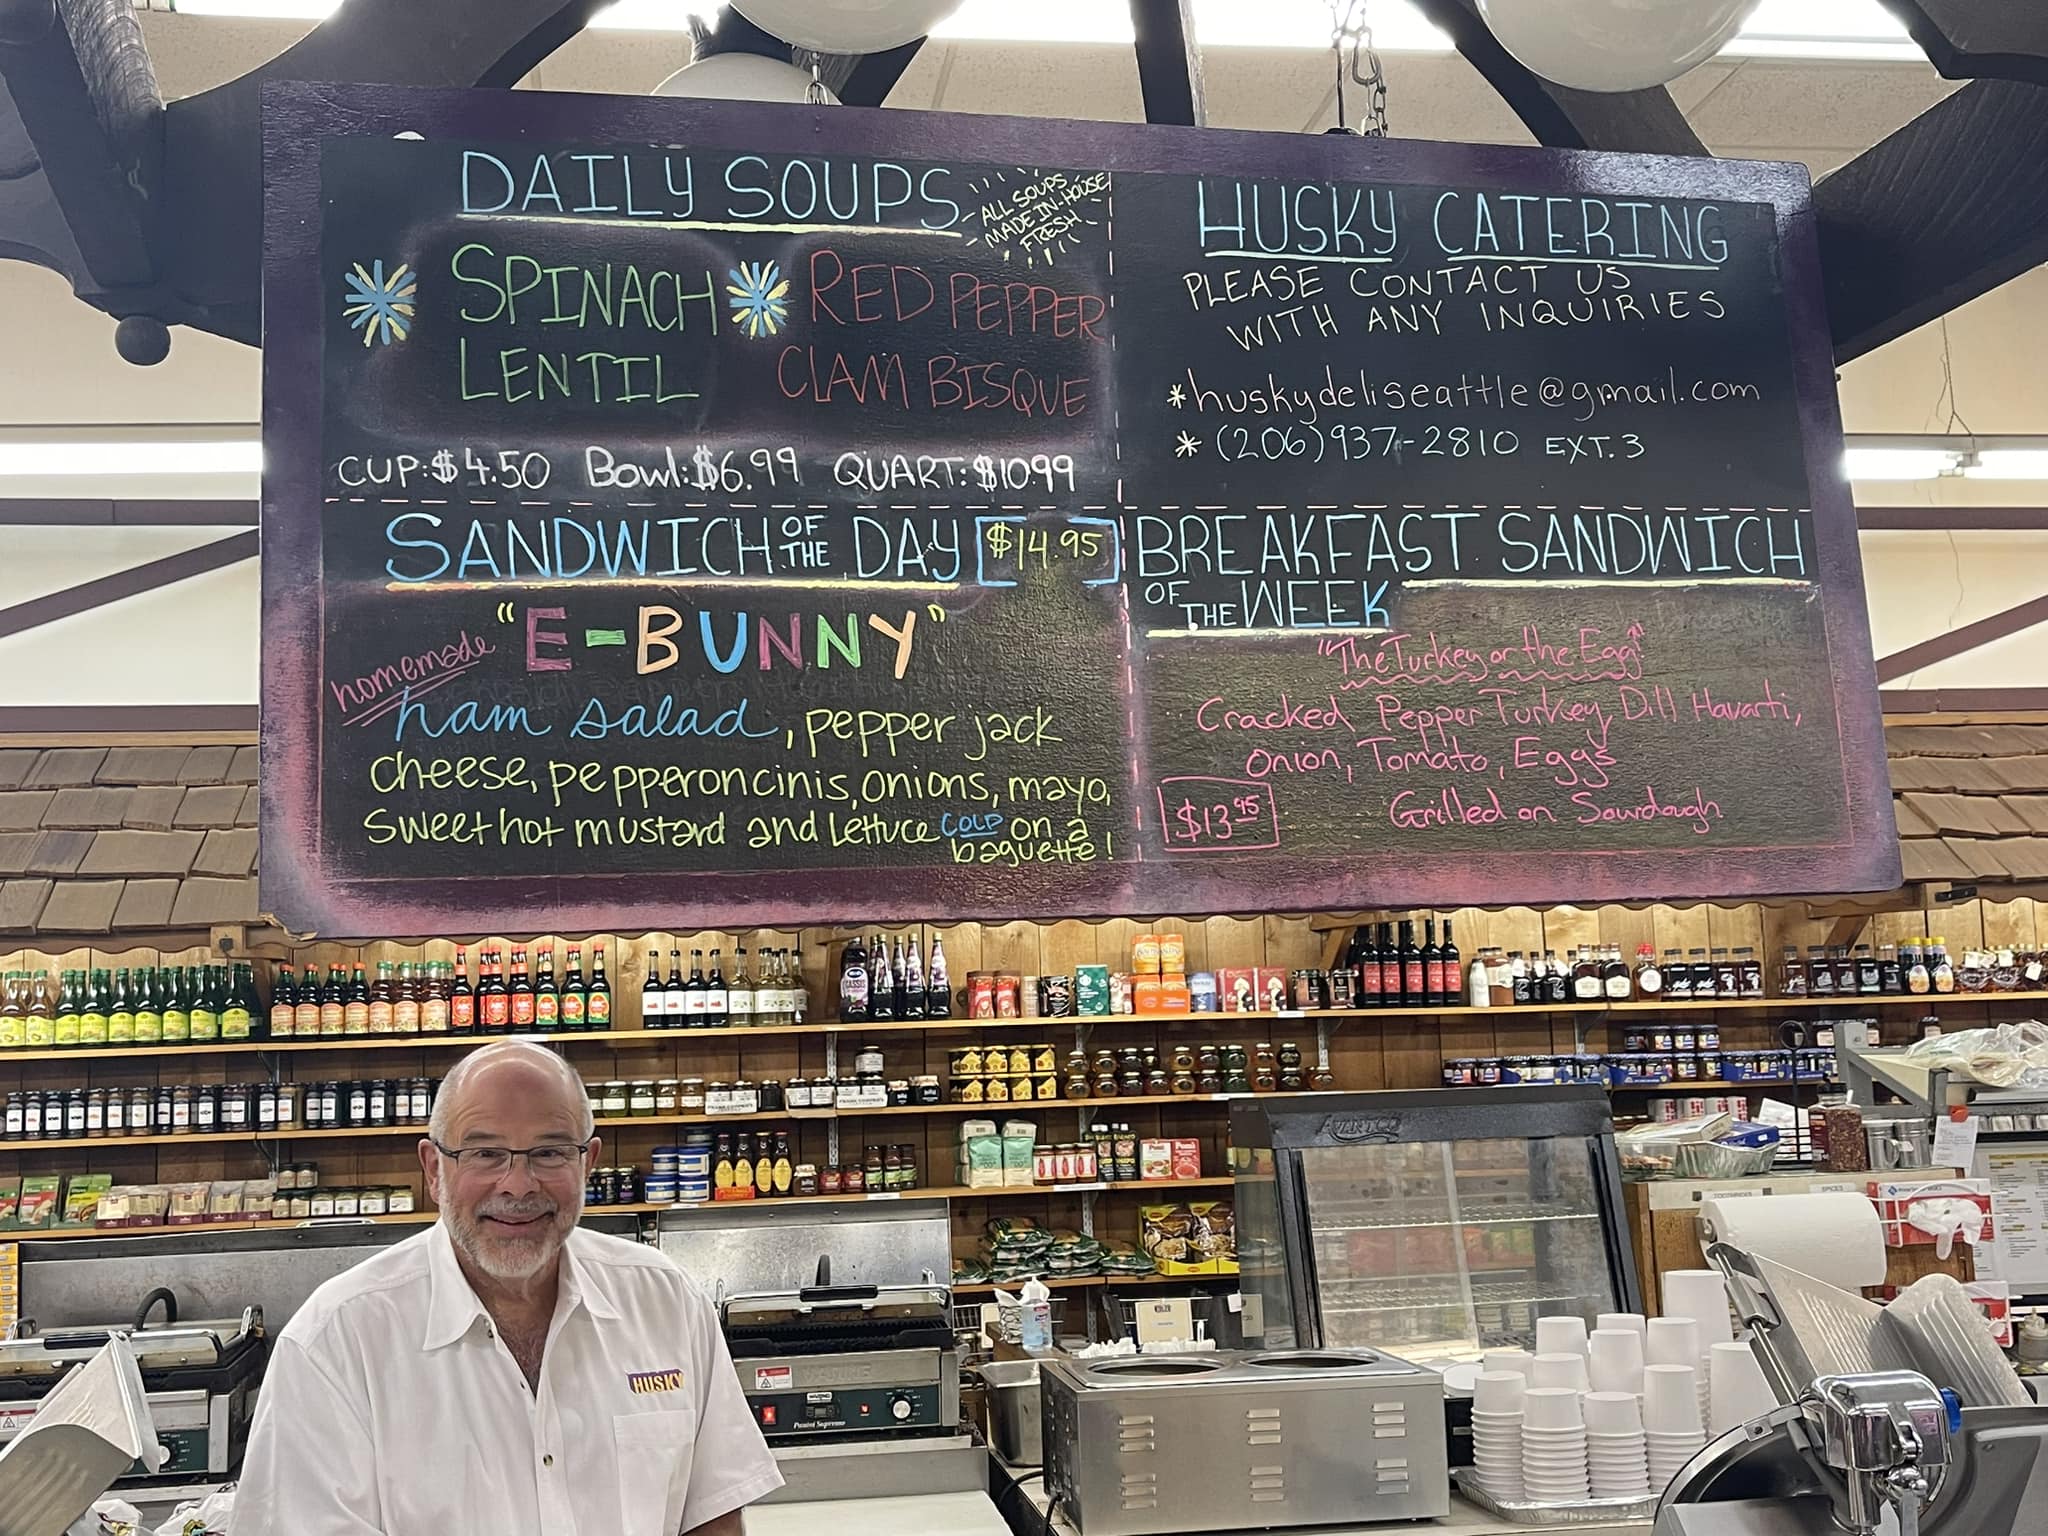 DAILY SOUPS
ALL SOUPS
MADE IN-HOUSE
FRESH
SPINACH
LENTIL
RED PEPPER
CLAM BISQUE
CUP: $4.50 Bowl: $6.99 QUART: $10.99
SANDWICH OF THE DAY $14.95
"E-BUNNY"
homemade
ham salad, pepper jack
cheese, pepperoncinis, onions, mayo,
sweet hot mustard and lettuce COLD on a
baguette!
HUSKY CATERING
PLEASE CONTACT US
WITH ANY INQUIRIES
*huskydeliseattle@gmail.com
* (206)937-2810 EXT. 3
BREAKFAST SANDWICH
OF THE WEEK
"The Turkey or the Egg"
Cracked Pepper Turkey, Dill Havarti,
Onion, Tomato, Eggs
Grilled on Sourdough
$13.95
CASSIS
HUSKY
AVANTCO
Panini Supremo